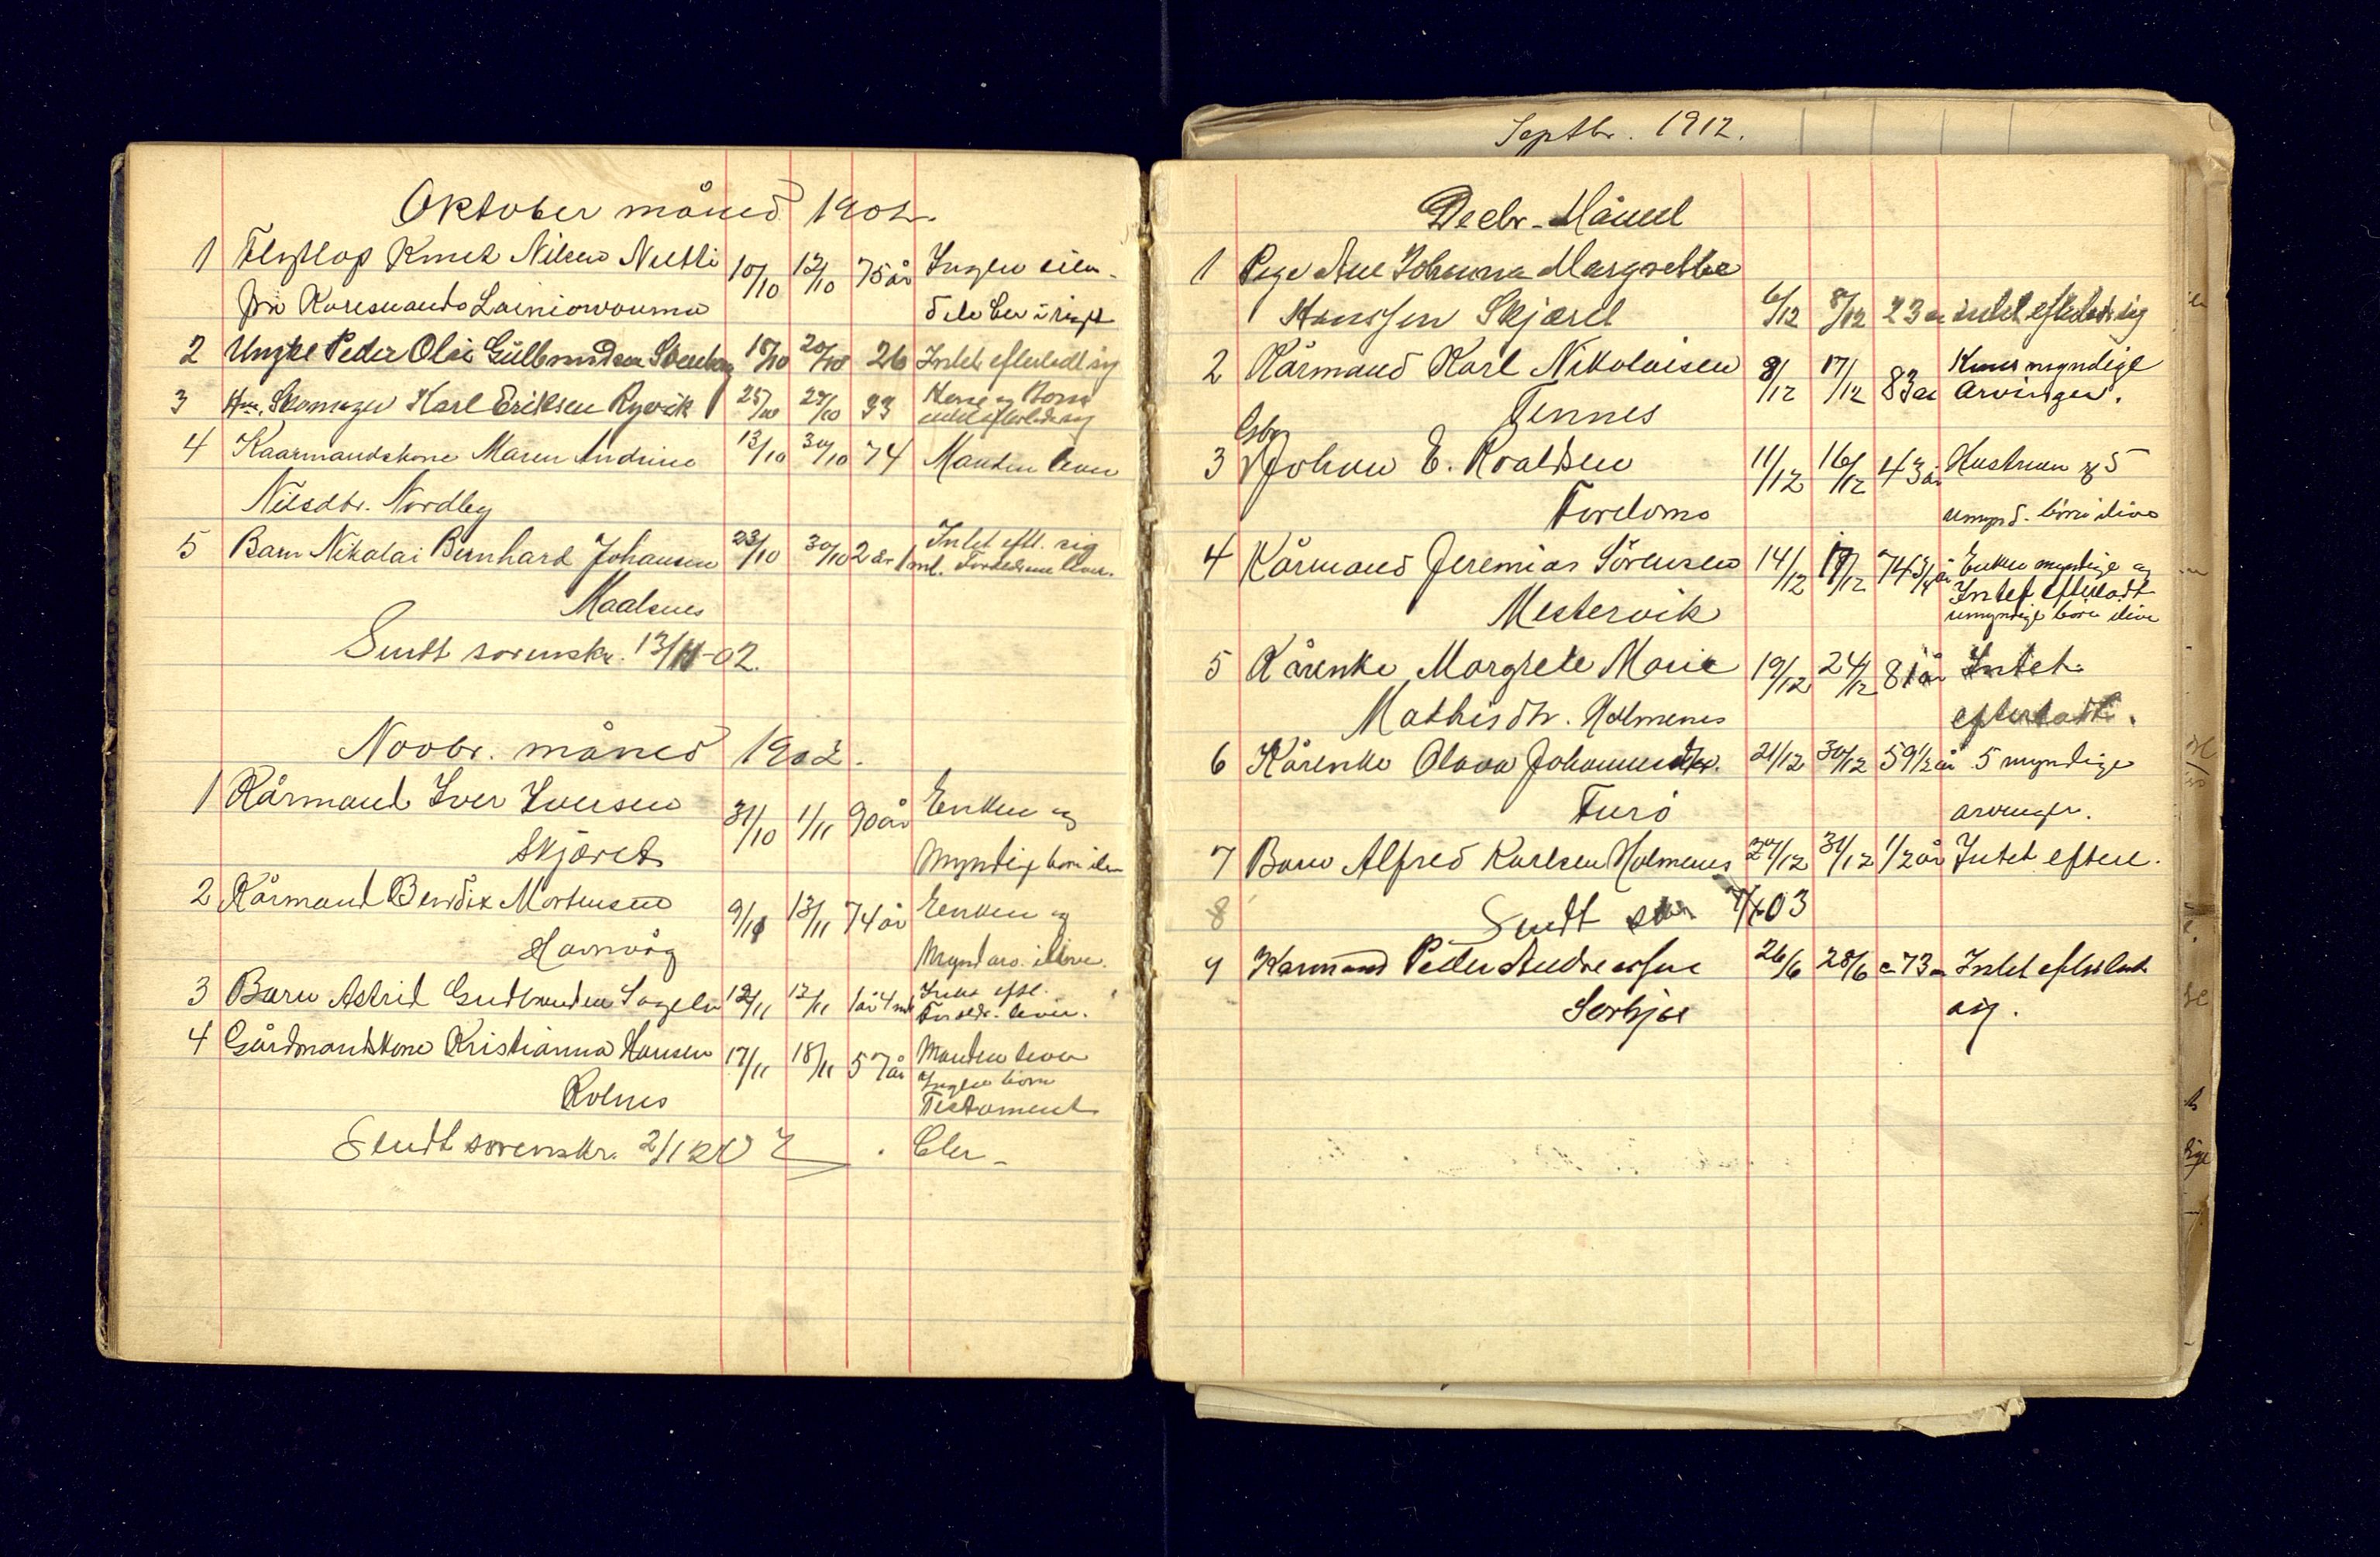 Oktober måned 1902.
1 Flytlap Knut Nilsen Nutti 10/10 12/10 75 år Ingen eien-
fra Karesuando Lainiovouma
2 Ungkl Peder Olai Gulbrandsen 15/10 20/10 26 Intet efterladt sig
3 Skomager Karl Eriksen Ryvik 25/10 29/10 33 Kone og Børn
intet efterladt sig
4 Kaarmandskone Maren Andrine 13/10 30/10 74 Manden lever
Nilsdtr. Nordby
5 Barn Nikolai Bernhard Johansen 23/10 30/10 2 år 1 md. Intet eftl. sig
Forældrene lever.
Maalsnes
Sendt sorenskr. 13/11-02.
Novbr. måned 1902.
1 Kårmand Iver Iversen 31/10 1/11 90 år Enken og
Skjæret myndige børn
2 Kårmand Bendix Mortensen 9/11 13/11 74 år Enken og
Havnvåg Mynd arv. ilive.
3 Barn Astrid Gudbrandsen 12/11 12/11 1 år 4 md Intet eftl.
Forældr. lever.
4 Gårdmandskone Kristianna Hansen 17/11 18/11 57 år Manden lever
Ingen børn
Rolnes Testament
Sendt sorenskr. 2/12
Septbr. 1912.
Decbr. Måned
1 Pige Ane Johanna Margrethe
Hanssen Skjæret 6/12 8/12 23 år intet efterladt sig
2 Kårmand Karl Nikolaisen 8/12 17/12 83 år Kun myndige
Tennes arvinger.
3 Gbr Johan E. Roaldsen 11/12 16/12 43 år Hustruen og 5
Fordomo umynd. børn ilive
4 Kårmand Jeremias Sörensen 14/12 17/12 74 3/4 år Enken myndige og
Mestervik Intet efterladt
umyndige børn ilive
5 Kårenke Margrete Marie 19/12 24/12 81 år Intet
Mathisdtr. Holmenes efterladt.
6 Kårenke Olava Johannesdtr. 21/12 30/12 59 1/2 år 5 myndige
Turö arvinger.
7 Barn Alfred Karlsen Holmenes 24/12 31/12 1/2 år Intet efterl.
8 Sendt 03
9 Karmand Peder Andreassen 26/6 28/6 c 73 år Intet efterladt
sig.